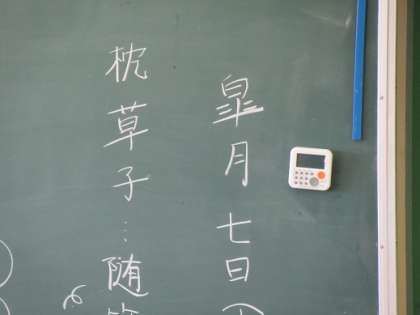 皐月七日
枕草子…随